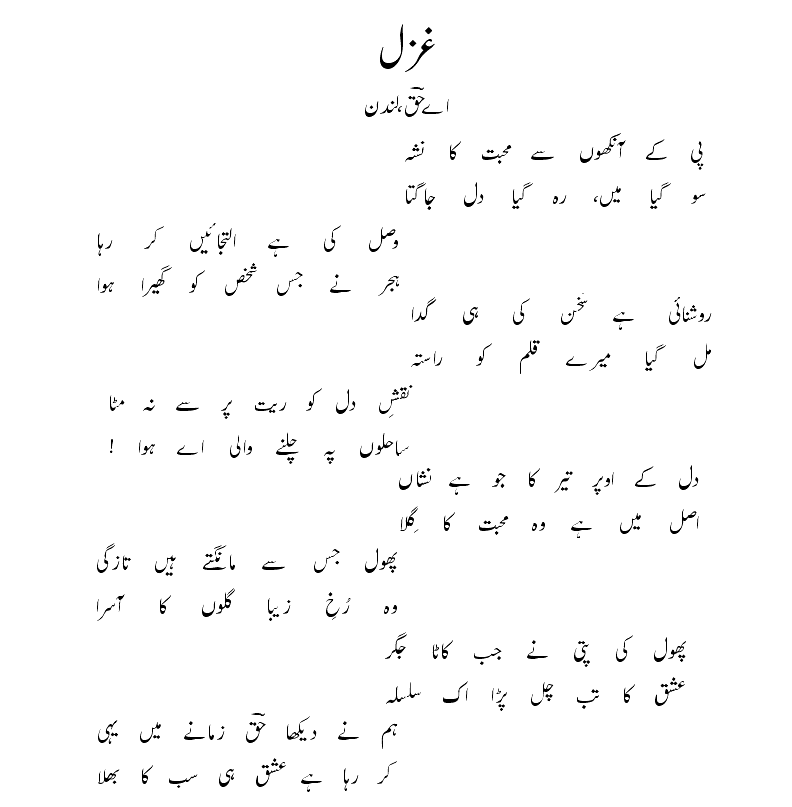 غزل
اے حقؔ، لندن
پی کے آنکھوں سے محبت کا نشہ
سو گیا میں، رہ گیا دل جاگتا
وصل کی ہے التجائیں کر رہا
ہجر نے جس شخص کو گھیرا ہوا
روشنائی ہے سَخن کی ہی گدا
مل گیا میرے قلم کو راستہ
نقشِ دل کو ریت پر سے نہ مٹا
ساحلوں پہ چلنے والی اے ہوا !
دل کے اوپر تیر کا جو ہے نشاں
اصل میں ہے وہ محبت کا گِلا
پھول جس سے مانگتے ہیں تازگی
وہ رُخِ زیبا گلوں کا آسرا
پھول کی پتی نے جب کاٹا جگر
عشق کا تب چل پڑا اک سلسلہ
ہم نے دیکھا حقؔ زمانے میں یہی
کر رہا ہے عشق ہی سب کا بھلا